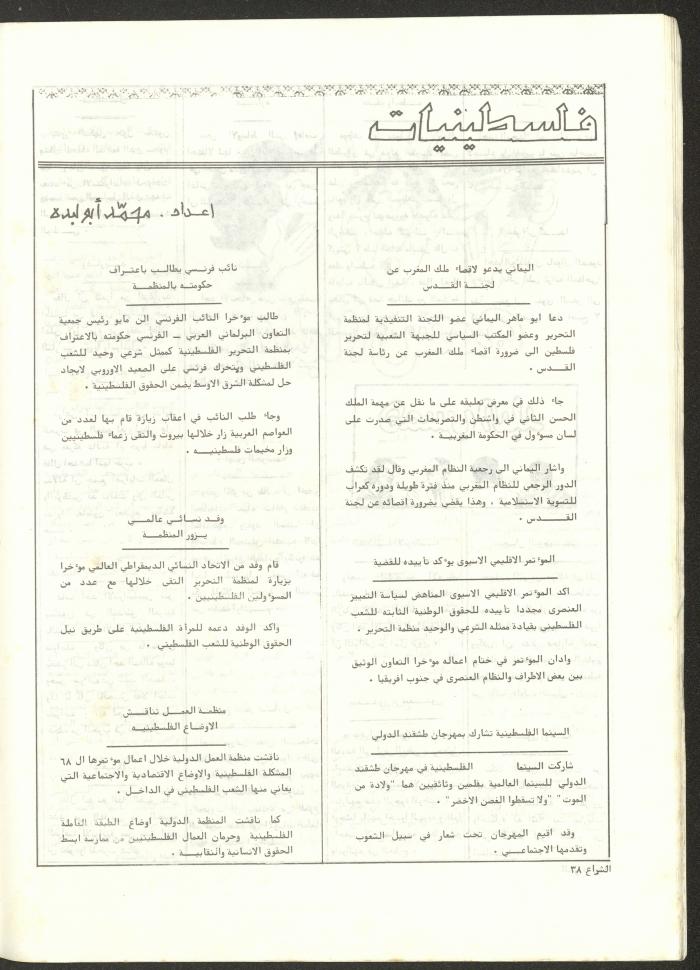 فلسطينيات
اعداد . محمد أبو لبده
اليماني يدعو لاقصاء ملك المغرب عن
لجنة القدس
دعا ابو ماهر اليماني عضو اللجنة التنفيذية لمنظمة
التحرير وعضو المكتب السياسي للجبهة الشعبية لتحرير
فلسطين الى ضرورة اقصاء ملك المغرب عن رئاسة لجنة
القدس .
جاء ذلك في معرض تعليقه على ما نقل عن مهمة الملك
الحسن الثاني في واشنطن والتصريحات التي صدرت على
لسان مسوءول في الحكومة المغربية .
واشار اليماني الى رجعية النظام المغربي وقال لقد تكشف
الدور الرجعي للنظام المغربي منذ فترة طويلة ودوره كعراب
للتسوية الاستسلامية ، وهذا يقضي بضرورة اقصائه عن لجنة
القدس .
الموءتمر الاقليمي الاسيوى يوءكد تاءييده للقضية
اكد الموءتمر الاقليمي الاسيوى المناهض لسياسة التمييز
العنصرى مجددا تاءييده للحقوق الوطنية الثابته للشعب
الفلسطيني بقيادة ممثله الشرعي والوحيد منظمة التحرير .
وادان الموءتمر في ختام اعماله موءخرا التعاون الوثيق
بين بعض الاطراف والنظام العنصرى في جنوب افريقيا .
السينما الفلسطينية تشارك بمهرجان طشقند الدولي
شاركت السينما الفلسطينية في مهرجان طشقند
الدولي للسينما العالمية بفلمين وثائقيين هما "ولادة من
الموت" "ولا تسقطوا الغصن الاخضر" .
وقد اقيم المهرجان تحت شعار في سبيل الشعوب
وتقدمها الاجتماعي .
نائب فرنسي يطالب باعتراف
حكومته بالمنظمة
طالب موءخرا النائب الفرنسي الن مايو رئيس جمعية
التعاون البرلماني العربي ــ الفرنسي حكومته بالاعتراف
بمنظمة التحرير الفلسطينية كممثل شرعي وحيد للشعب
الفلسطيني وبتحرك فرنسي على الصعيد الاوروبي لايجاد
حل لمشكلة الشرق الاوسط يضمن الحقوق الفلسطينية .
وجاء طلب النائب في اعقاب زيارة قام بها لعدد من
العواصم العربية زار خلالها بيروت والتقى زعماء فلسطينيين
وزار مخيمات فلسطينيه .
وفد نسائي عالمي
يزور المنظمة
قام وفد من الاتحاد النسائي الديمقراطي العالمي موءخرا
بزيارة لمنظمة التحرير التقى خلالها مع عدد من
المسوءولين الفلسطينيين .
واكد الوفد دعمه للمرأة الفلسطينية على طريق نيل
الحقوق الوطنية للشعب الفلسطيني .
منظمة العمل تناقش
الاوضاع الفلسطينيه
ناقشت منظمة العمل الدولية خلال اعمال موءتمرها ال ٦٨
المشكلة الفلسطينية والاوضاع الاقتصادية والاجتماعية التي
يعاني منها الشعب الفلسطيني في الداخل .
كما ناقشت المنظمة الدولية اوضاع الطبقة العاملة
الفلسطينية وحرمان العمال الفلسطينيين من ممارسة ابسط
الحقوق الانسانية والنقابية .
الشراع ٣٨